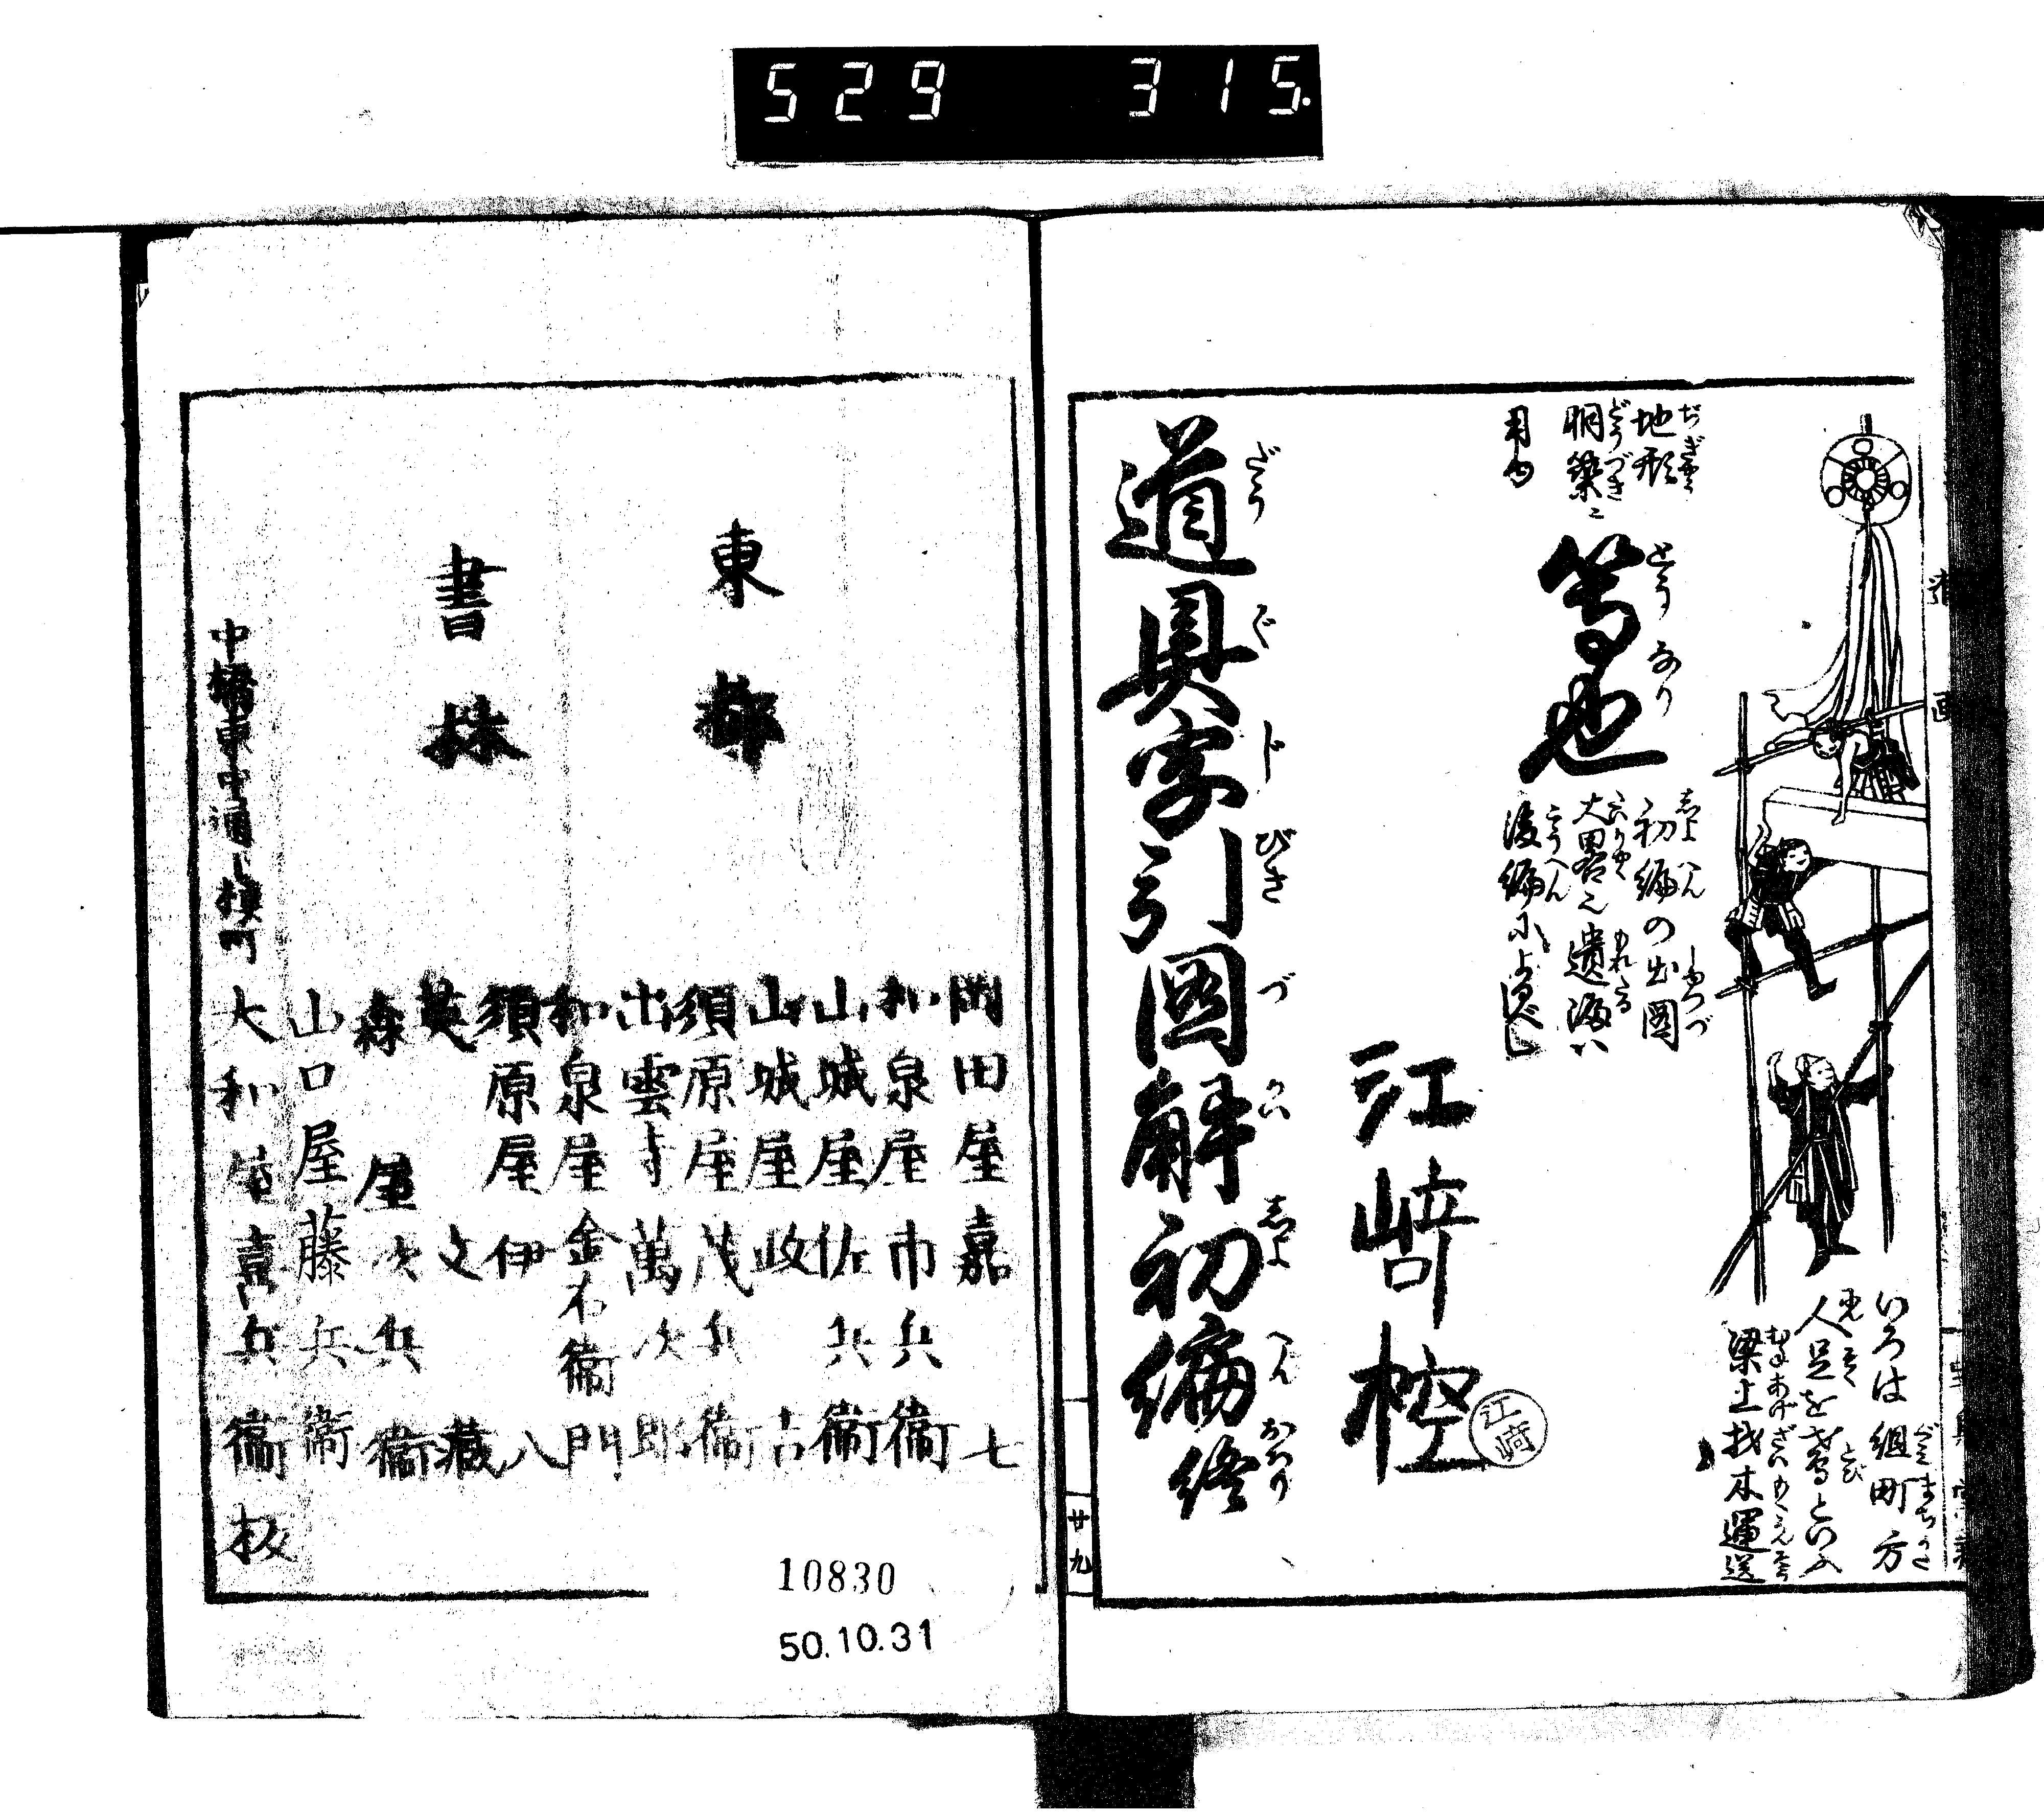 529 315.
いろは組町方
人足を鳶といふ
梁上材木運送
地形
胴築ニ
用ゆ
等也
初編の出図
大畧之遺漏ハ
後編に出すべし
江崎控
江崎
道具字引圖解初編終
廿九
東都
書林
岡田屋嘉七
和泉屋市兵衛
山城屋佐兵衛
山城屋政吉
須原屋茂兵衛
出雲寺萬次郎
和泉屋金右衛門
須原屋伊八
英文藏
森屋次兵衛
山口屋藤兵衛
中橋東中通
大和屋喜兵衛板
10830
50.10.31